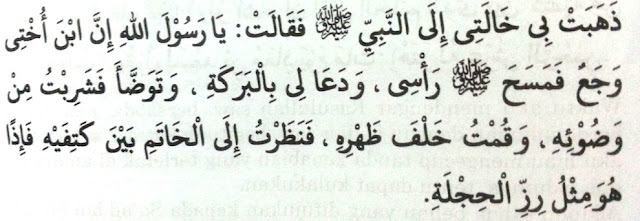 ذَهَبَتْ بِي خَالَتِي إِلَى النَّبِيِّ ﷺ فَقَالَتْ: يَا رَسُوْلَ اللهِ إِنَّ ابْنَ أُخْتِي
وَجِع فَمَسَحَ ﷺ رَأْسِى ، وَدَعَا لِي بِالْبَرَكَةِ ، وَتَوَضَّأَ فَشَرِبْتُ مِنْ
وَضُوْئِهِ ، وَقُمْتُ خَلْفَ ظَهْرِهِ ، فَنَظَرْتُ إِلَى الْخَاتَمِ بَيْنَ كَتِفَيْهِ فَإِذَا
هُوَ مِثْلُ زِرِّ الْحَجَلَةِ.